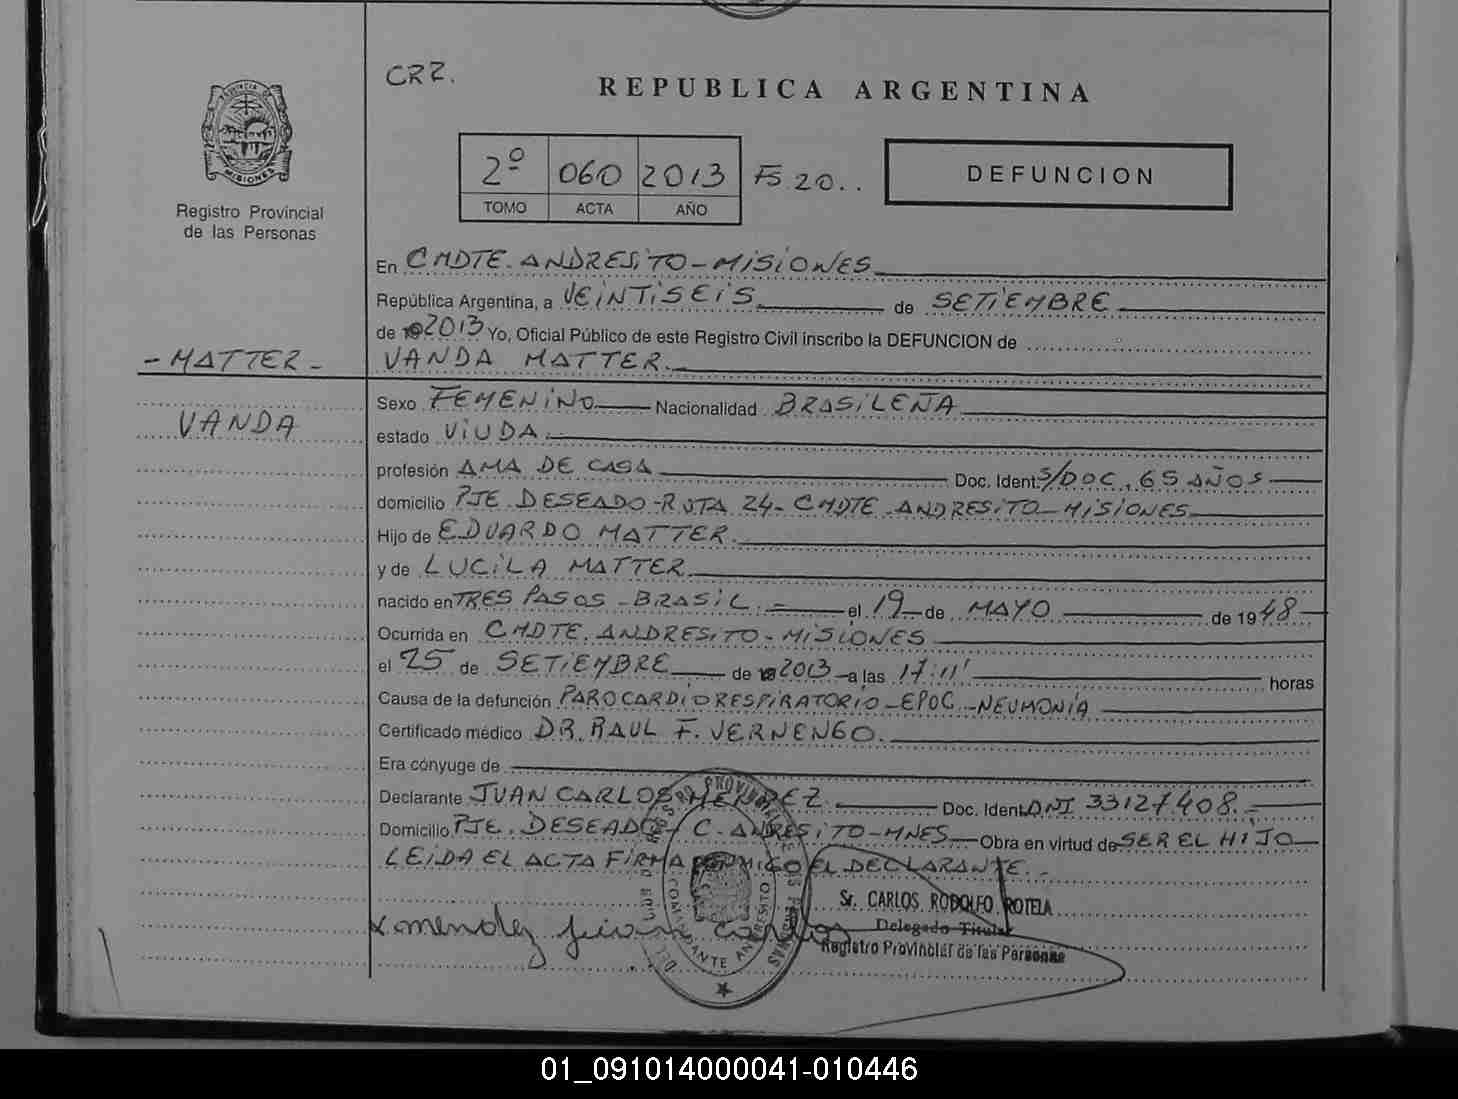 CRZ.
REPUBLICA ARGENTINA
PROVINCIA DE
MISIONES
Registro Provincial
de las Personas
2º 060 2013 Fs 20..
TOMO ACTA AÑO
DEFUNCION
En CMDTE. ANDRESiTO - MiSiONES
República Argentina, a VEiNTiSEiS de SETiEMBRE
de 19 2013 Yo, Oficial Público de este Registro Civil inscribo la DEFUNCION de
- MATTER - VANDA MATTER.
Sexo FEMENiNO Nacionalidad BRASiLEÑA
VANDA
estado ViUDA.
profesión AMA DE CASA Doc. Ident. S/DOC. 65 AÑOS
domicilio PJE DESEADO - RUTA 24 - CMDTE. ANDRESiTO - MiSiONES
Hijo de EDUARDO MATTER.
y de LUCiLA MATTER
nacido en TRES PASOS - BRASiL. - el 19 de MAYO de 1948
Ocurrida en CMDTE. ANDRESiTO - MiSiONES
el 25 de SETiEMBRE de 19 2013 a las 17:11' horas
Causa de la defunción PAROCARDiORESPiRATORiO - EPOC - NEUMONíA
Certificado médico DR. RAUL F. VERNENGO.
Era cónyuge de
Declarante JUAN CARLOS MENDEZ Doc. Ident. DNI 33127.408.-
Domicilio PJE. DESEADO - C. ANDRESiTO - MNES Obra en virtud de SER EL HiJO
LEiDA EL ACTA FiRMA CONMIGO EL DECLARANTE.-
x mendez juan carlos
REGISTRO PROVINCIAL DE LAS PERSONAS
COMANDANTE ANDRESITO
Sr. CARLOS RODOLFO ROTELA
Delegado Titular
Registro Provincial de las Personas
01_091014000041-010446